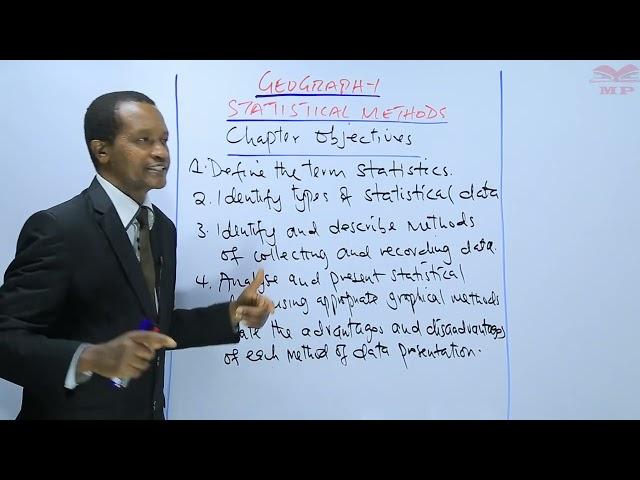 MP
GEOGRAPHY
STATISTICAL METHODS
Chapter Objectives
1. Define the term statistics.
2. Identify types of statistical data
3. Identify and describe methods
of collecting and recording data.
4. Analyse and present statistical
using appropriate graphical methods
the advantages and disadvantages
of each method of data presentation.